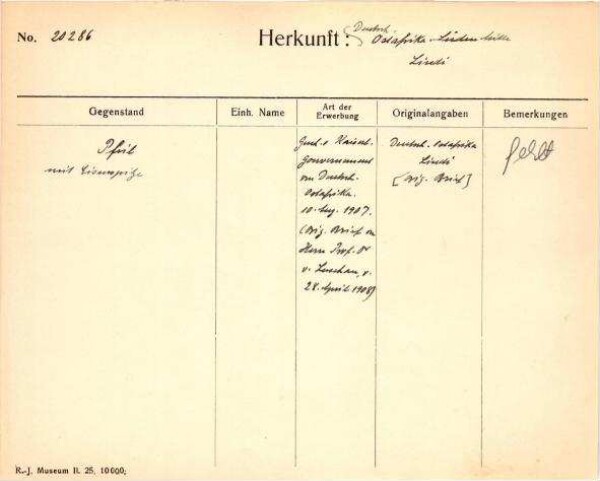 No. 20286
Herkunft: Deutsch.
Ostafrika
Lindi
Gegenstand
Einh. Name
Art der
Erwerbung
Originalangaben
Bemerkungen
Pfeil
mit Eisenspitze
Gesch. v. Kaiserl.
Gouvernement
von Deutsch-
Ostafrika.
10. Aug. 1907.
(Orig. Brief an
Herrn Prof. Dr
v. Luschan, v.
28. April 1908)
Deutsch. Ostafrika
Lindi
[Orig. Brief]
fehlt
R.-J. Museum II. 25. 10000.